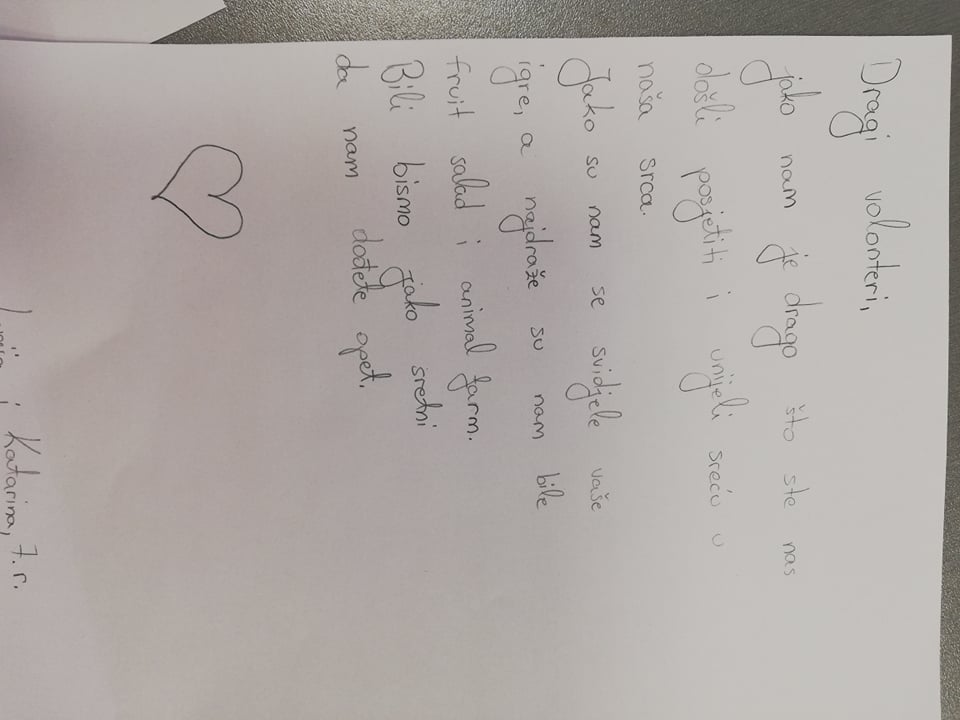 Dragi volonteri,
jako nam je drago što ste nas
došli posjetiti i unijeli sreću u
naša srca.
Jako su nam se svidjele vaše
igre, a najdraže su nam bile
fruit salad i animal farm.
Bili bismo jako sretni
da nam dođete opet.
i Katarina, 7. r.